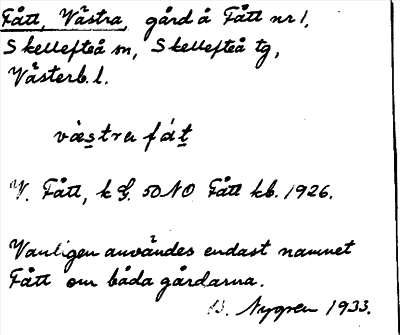 Fått, Västra, gård å Fått nr 1,
Skellefteå sn, Skellefteå tg,
Västerb. l.
væstra fát
V. Fått, k G. 50 NO Fått kb. 1926.
Vanligen användes endast namnet
Fått om båda gårdarna.
B. Nygren 1933.